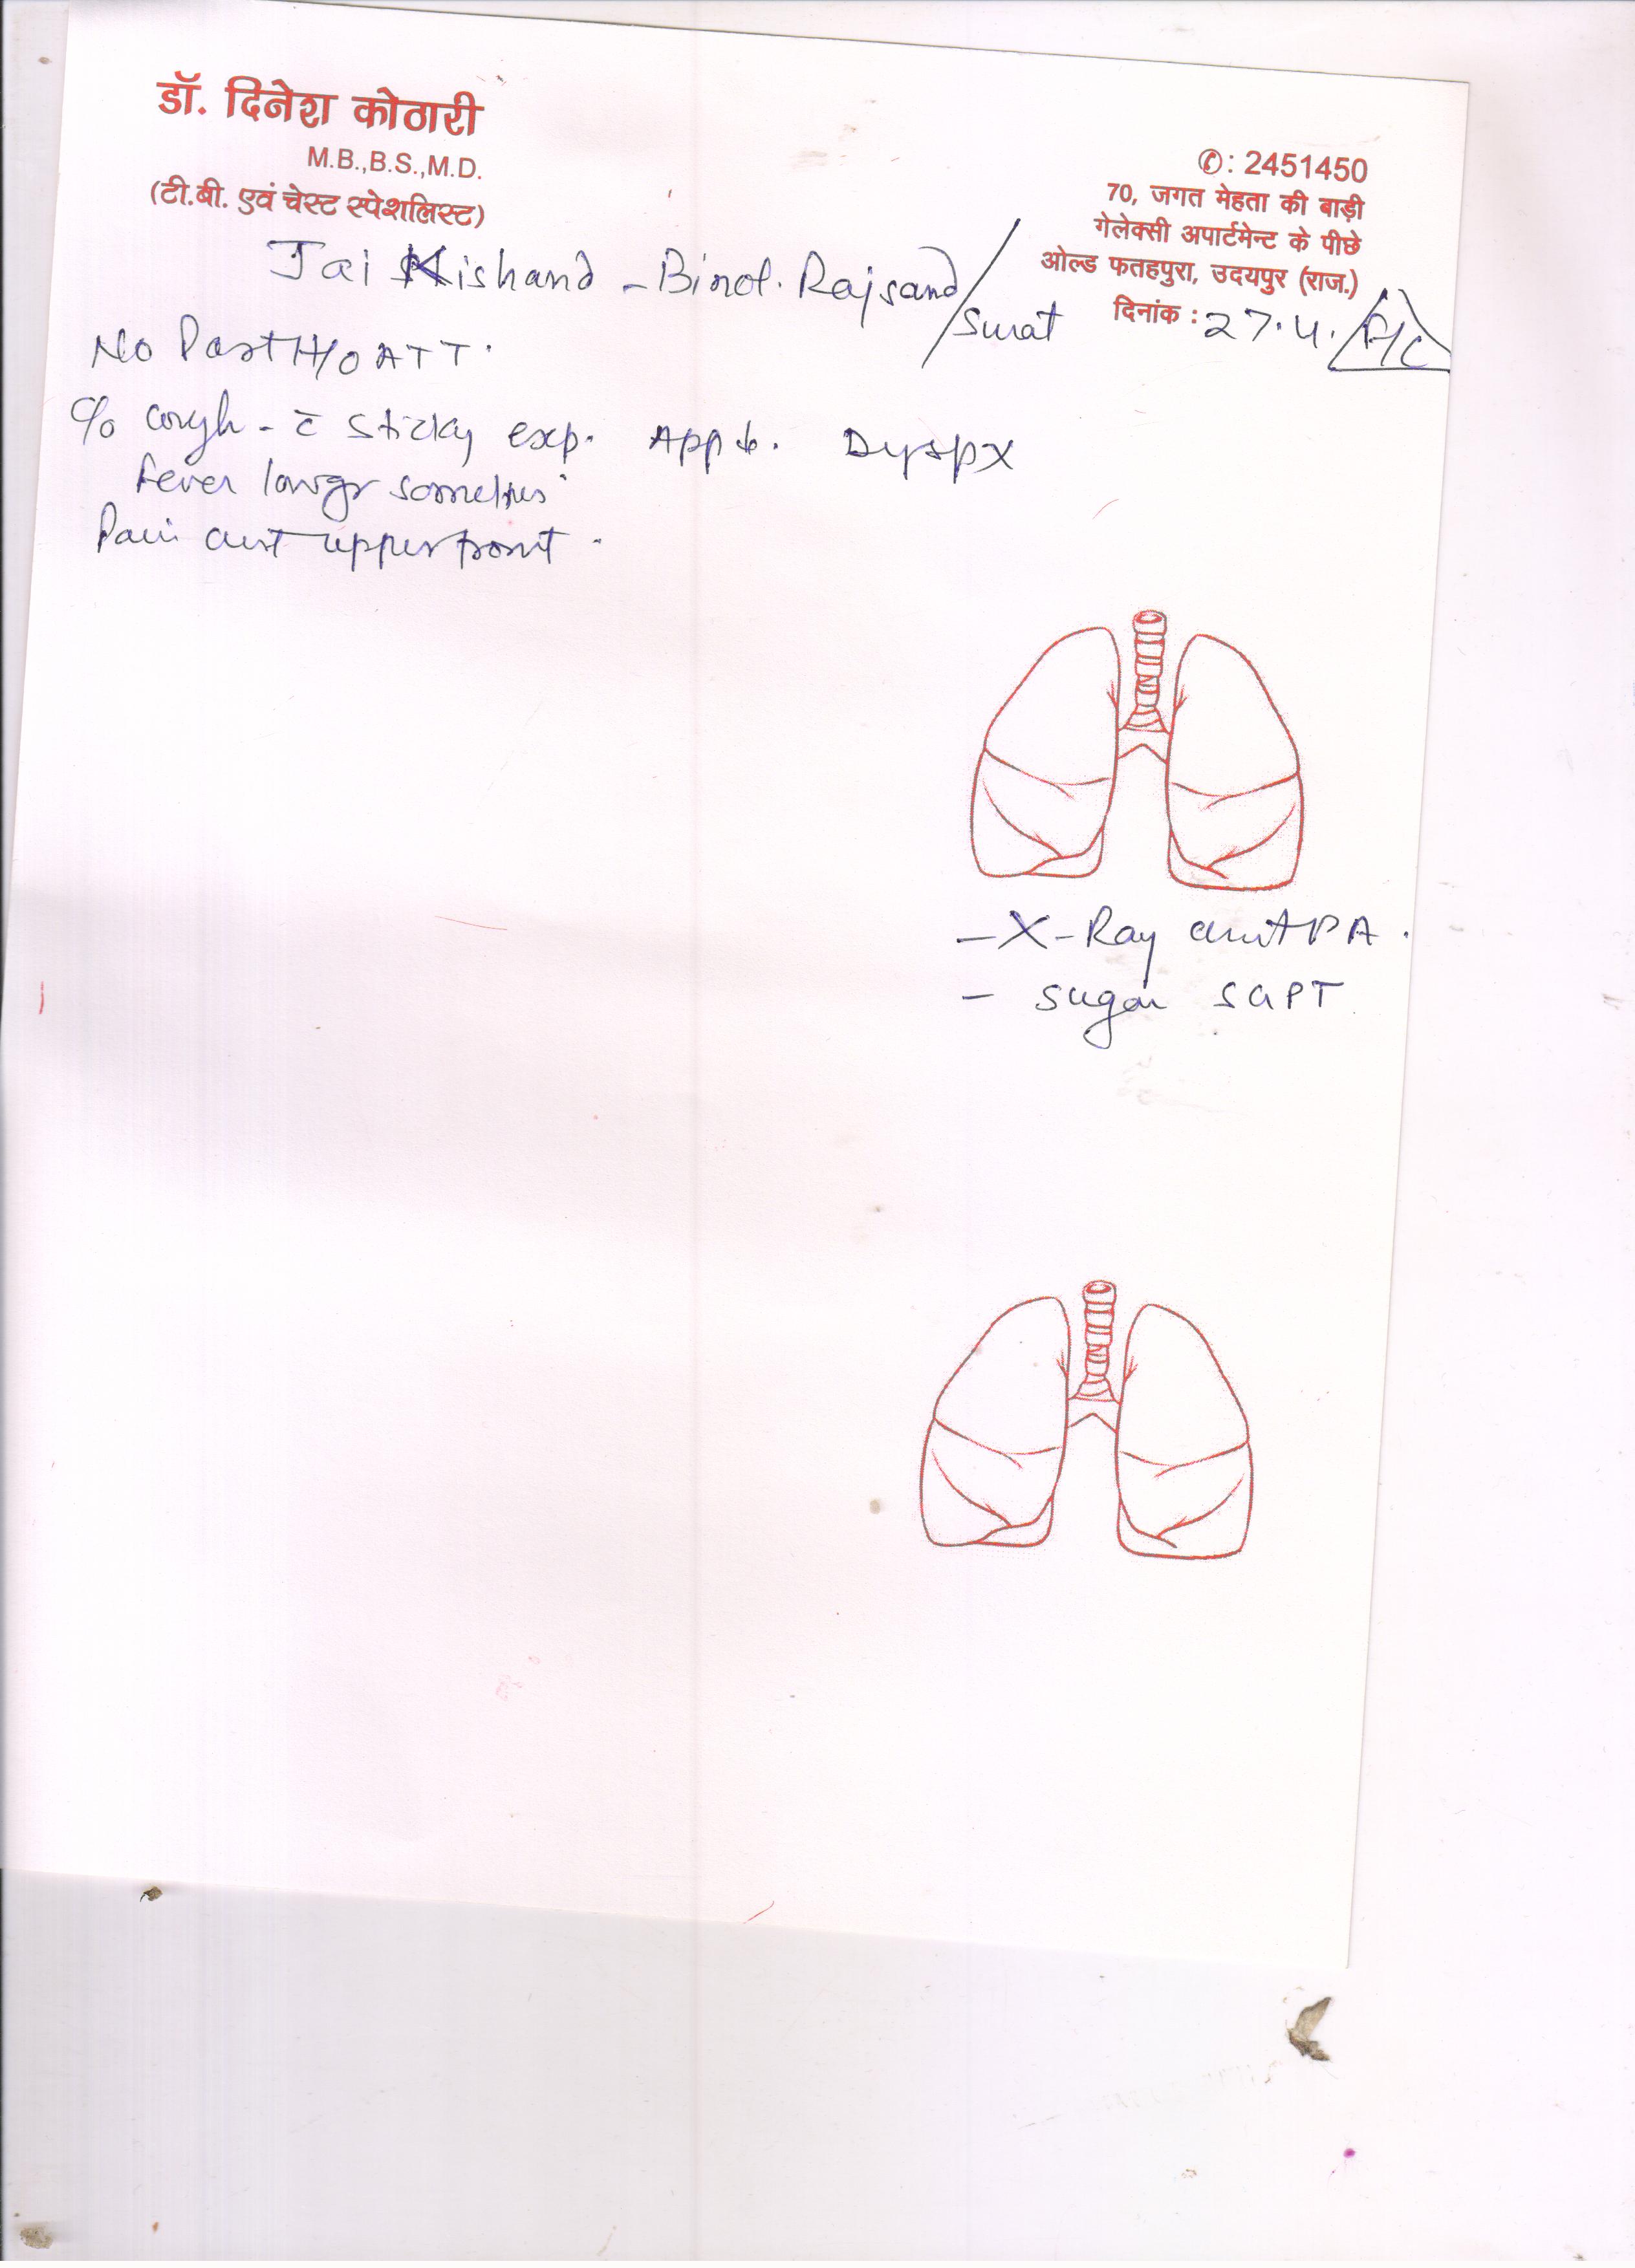 डॉ. दिनेश कोठारी
M.B.,B.S.,M.D.
(टी.बी. एवं चेस्ट स्पेशलिस्ट)
✆: 2451450
70, जगत मेहता की बाड़ी
गेलेक्सी अपार्टमेन्ट के पीछे
ओल्ड फतहपुरा, उदयपुर (राज.)
दिनांक : 27.4.
Jai Kishand - Binol. Rajsand/
Surat
No Past H/O ATT.
C/o cough - c̄ sticky exp. App ↓. Dysp X
Fever low gr sometimes
Pain chest upper front.
- X-Ray chest PA.
- Sugar SGPT